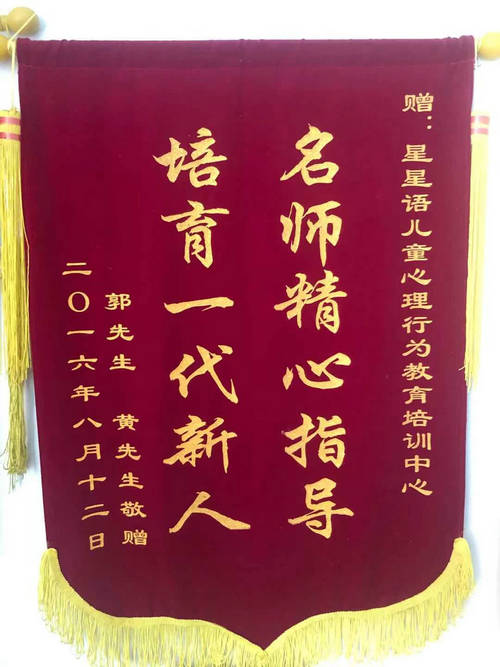 赠：星星语儿童心理行为教育培训中心
名师精心指导
培育一代新人
郭先生 黄先生敬赠
二〇一六年八月十二日